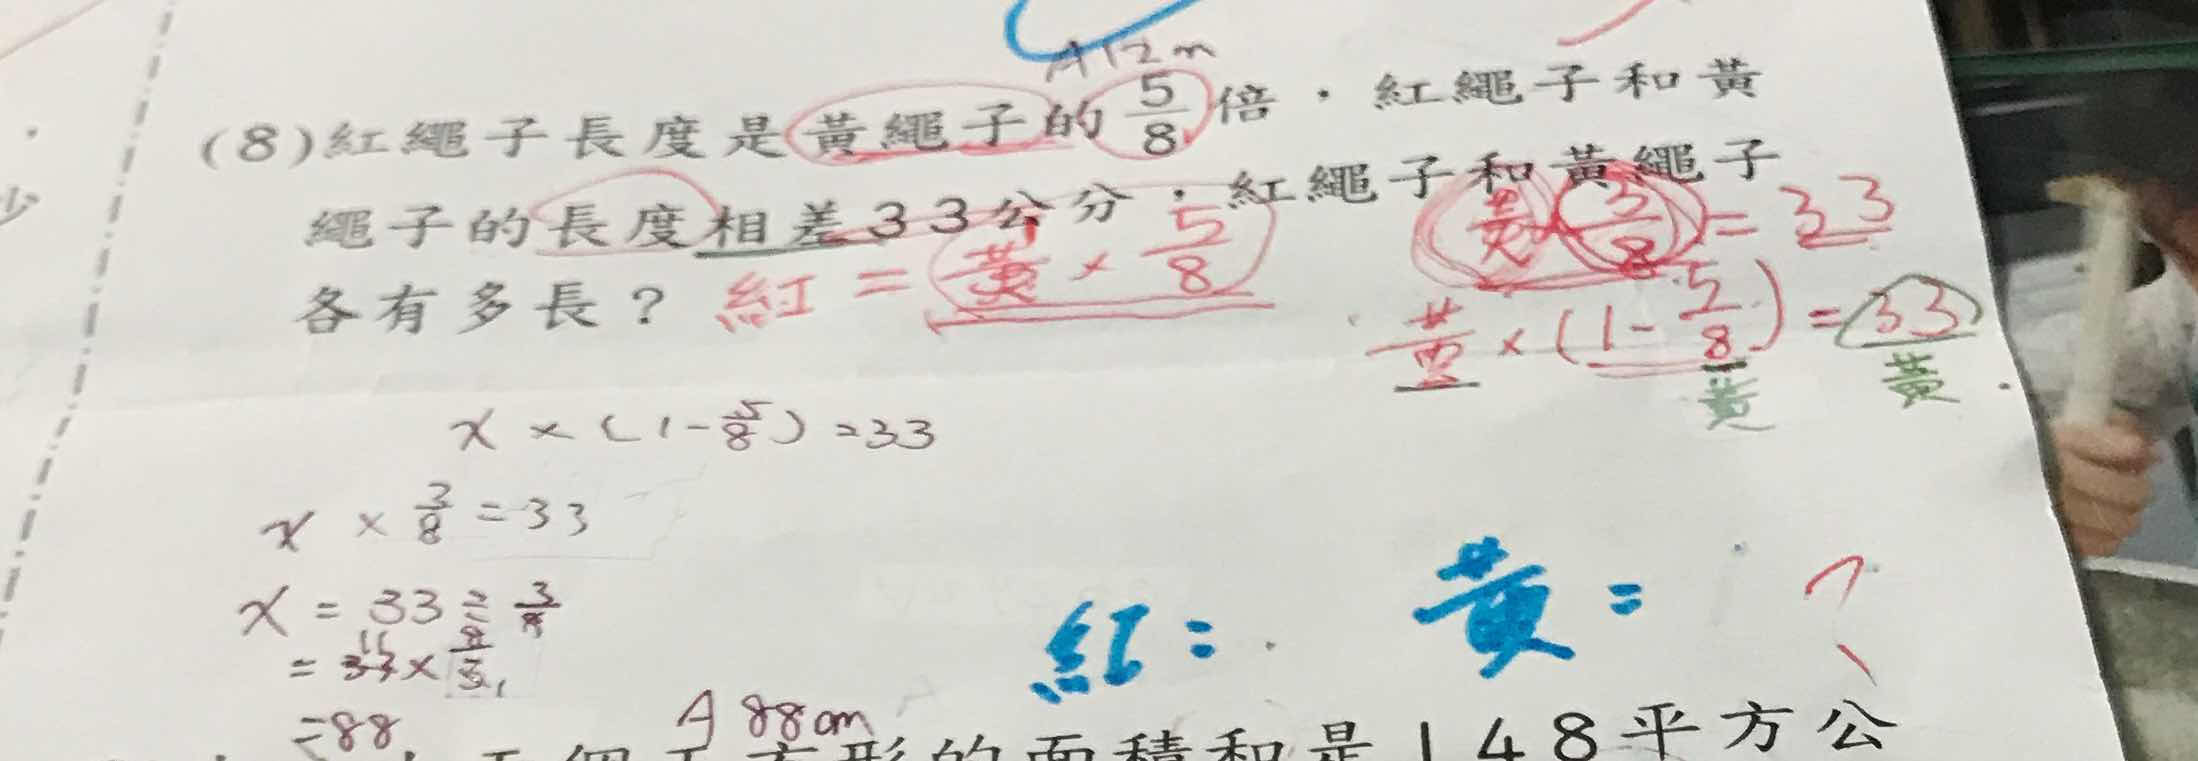 A12m
(8)紅繩子長度是黃繩子的5/8倍，紅繩子和黃
繩子的長度相差33公分，紅繩子和黃繩子
各有多長？
紅=黃×5/8
黃×3/8=33
黃×(1-5/8)=33
黃 黃
x×(1-5/8)=33
x×3/8=33
x=33÷3/8
=33×8/3
11 1
=88
A 88cm
紅： 黃：
？
個正方形的面積和是148平方公
少